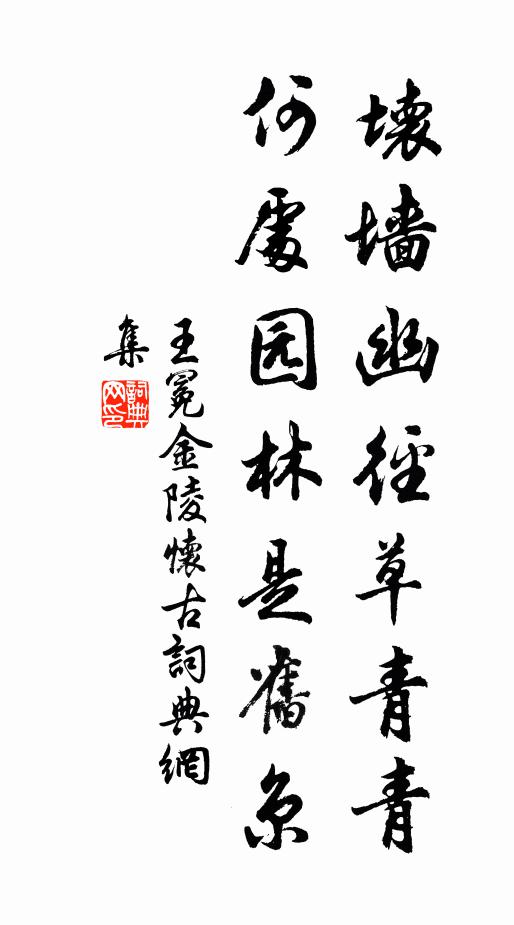 壞墙幽徑草青青
何處园林是舊京
王冕金陵懷古詞典網
集
詞典
网印